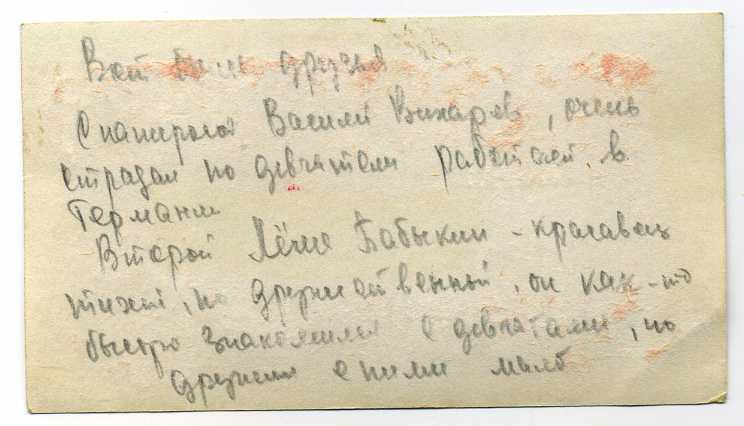 Вот были друзья
С папиросой Василий Вихарев, очень
страдал по девчатам работал в
Германии
Второй Лёша Бабыкин - красавец
тихий, но дружественный, он как-то
быстро знакомился с девчатами, но
дружил с ними мало